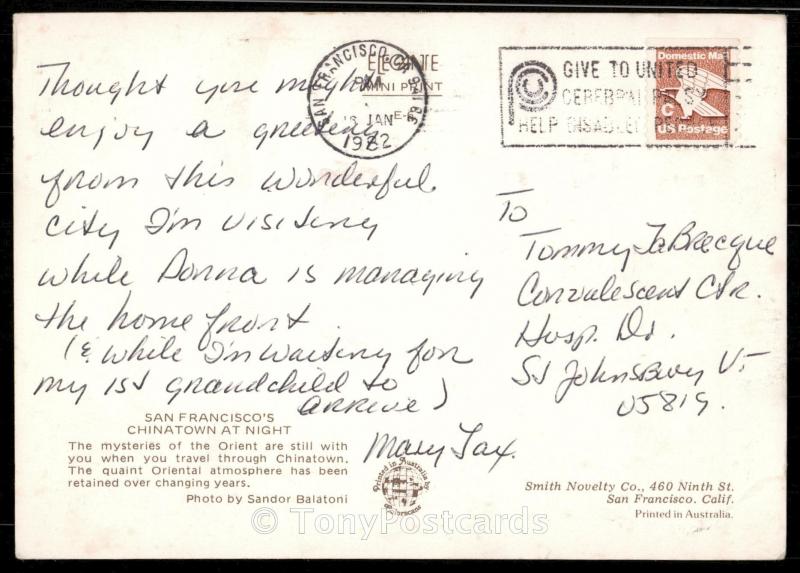 Thought you might
enjoy a greeting
from this wonderful
city I'm visiting
while Donna is managing
the home front.
(& while I'm waiting for
my 1st grandchild to
arrive)
Mary Tax.
SAN FRANCISCO'S
CHINATOWN AT NIGHT
The mysteries of the Orient are still with
you when you travel through Chinatown.
The quaint Oriental atmosphere has been
retained over changing years.
Photo by Sandor Balatoni
ELEGANTE
MINI PRINT
SAN FRANCISCO CA
PM
JAN
1982
GIVE TO UNITED
CEREBRAL
HELP DISABLED
Domestic Mail
C
US Postage
To
Tommy LaBrecque
Convalescent Ctr.
Hosp. Dr.
St Johnsbury Vt
05819.
Printed in Australia by
Smith Novelty Co., 460 Ninth St.
San Francisco. Calif.
Printed in Australia.
© TonyPostcards